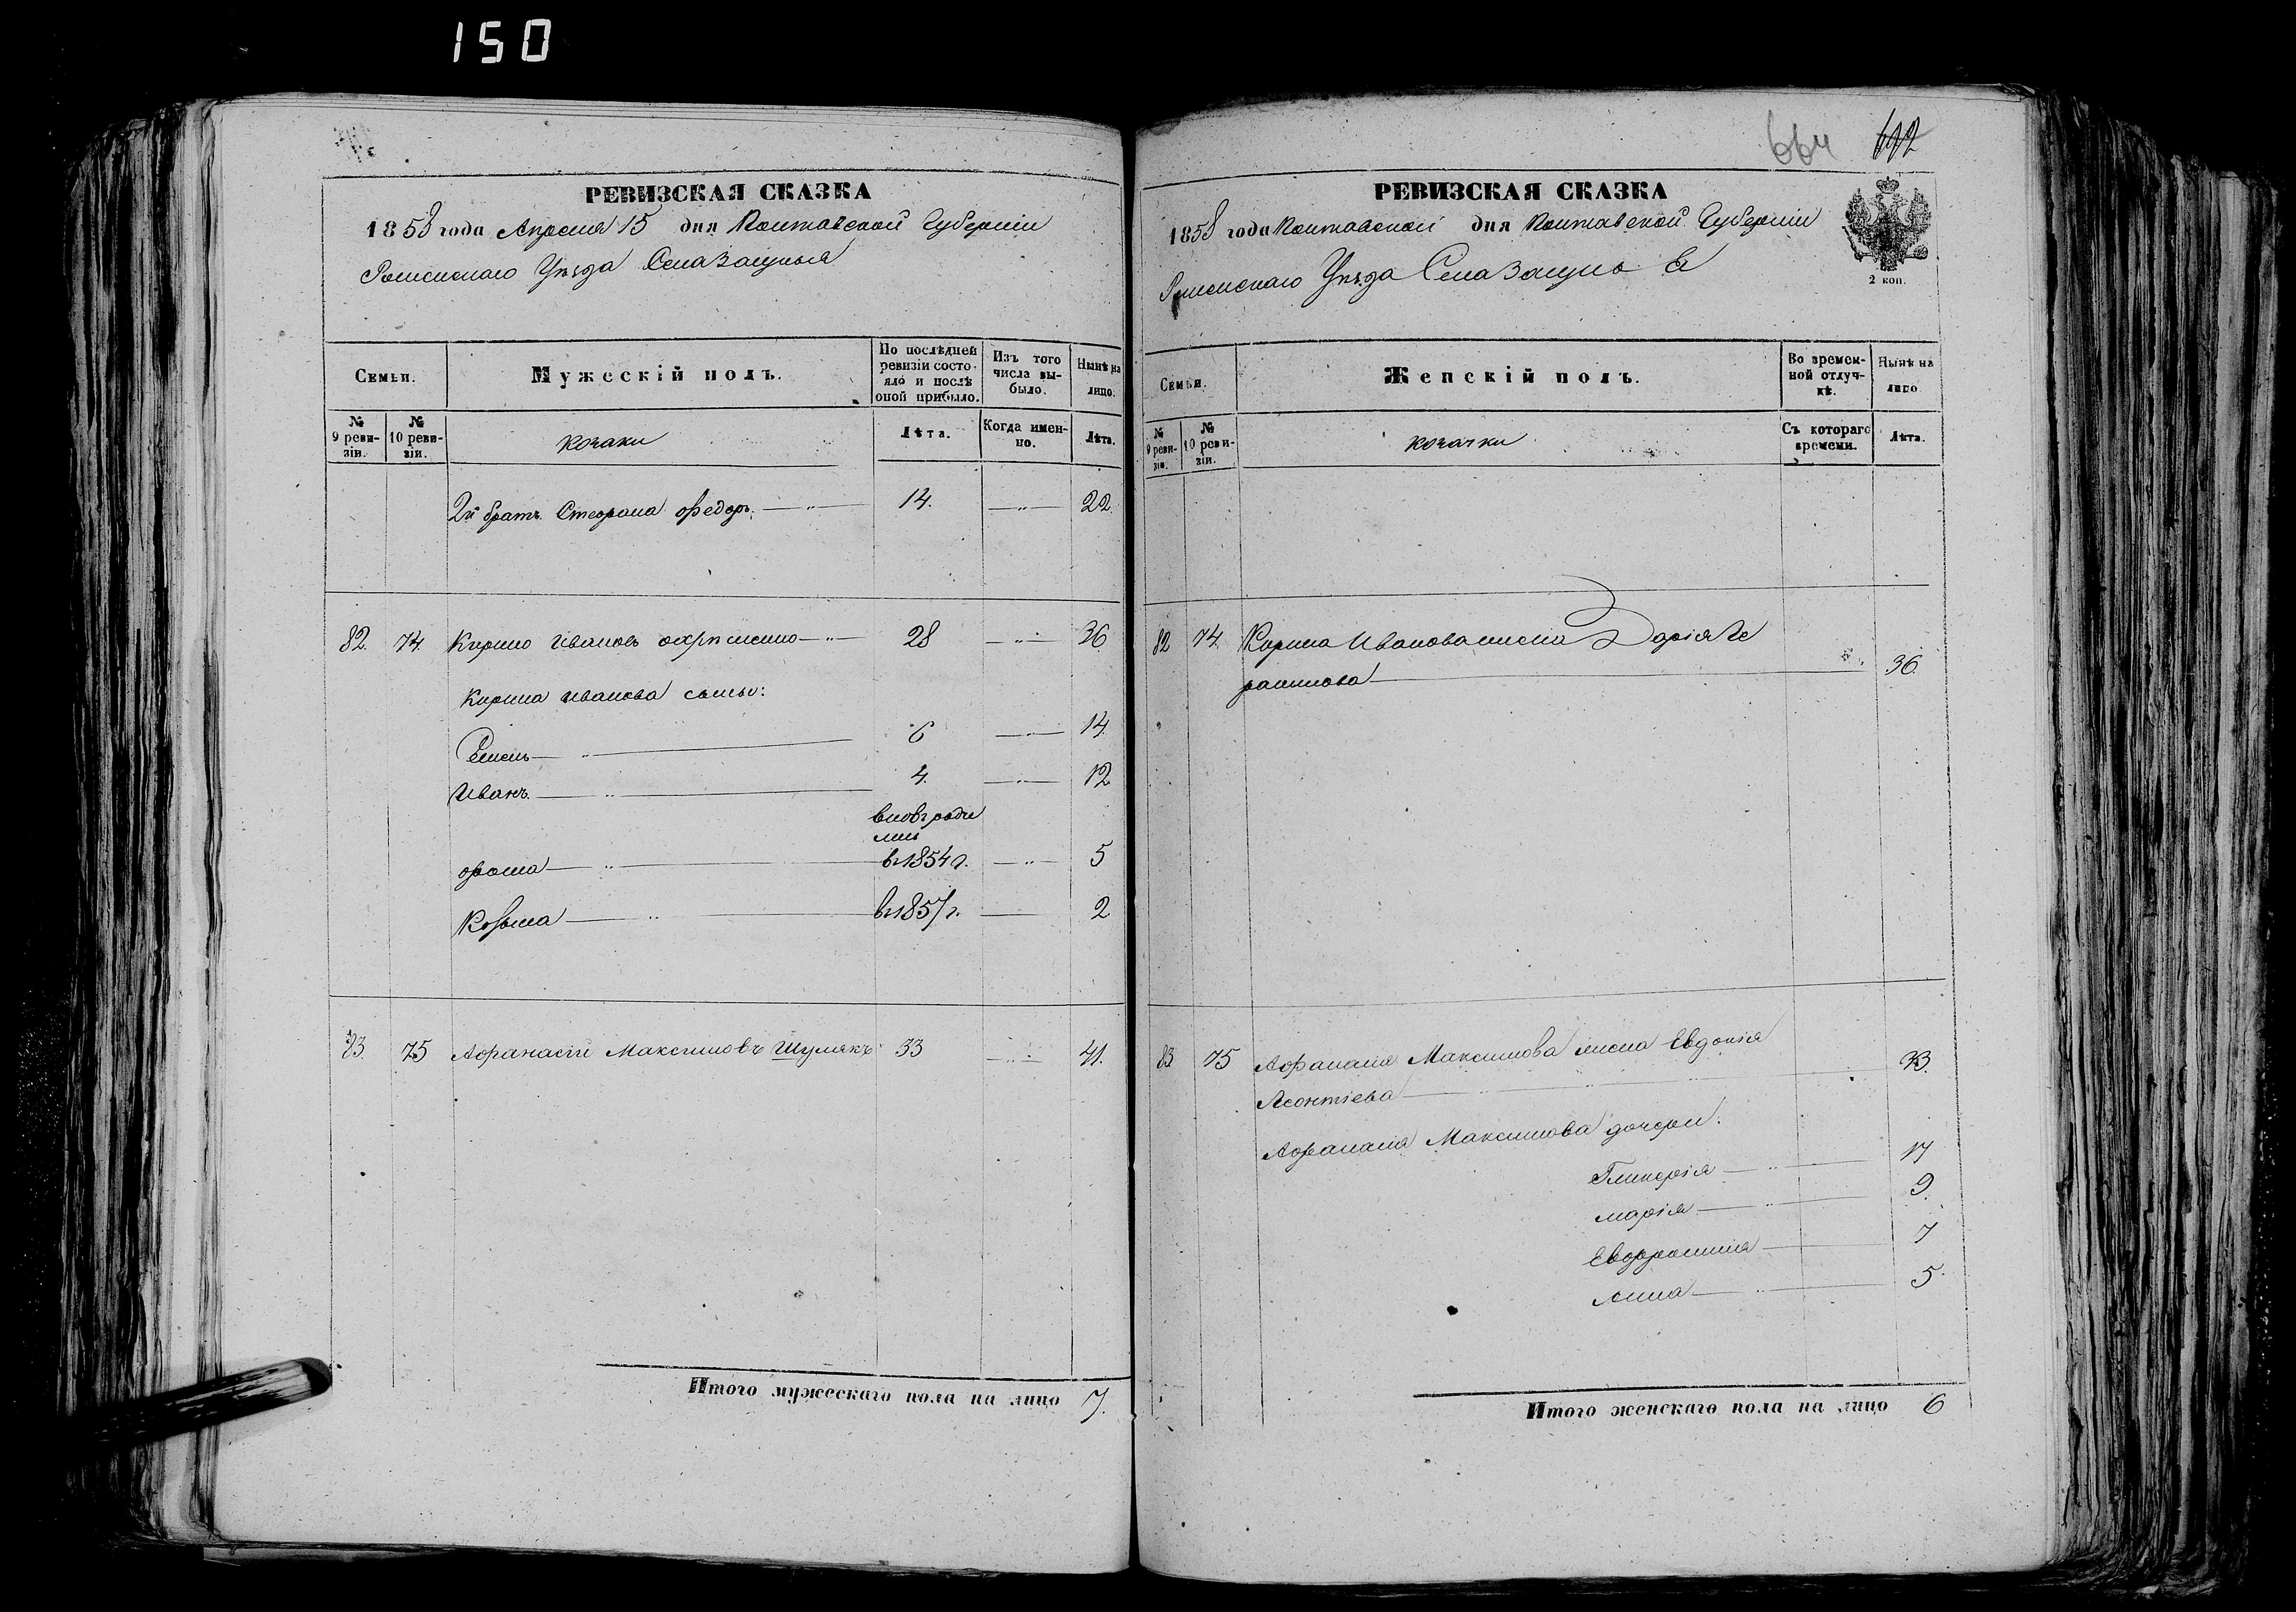 150
664 692
РЕВИЗСКАЯ СКАЗКА
1858 года Апреля 15 дня Полтавской Губернiи
Роменскаго Уѣзда Села
Семьи.
Мужескiй полъ.
По послѣдней ревизiи состояло и послѣ оной прибыло.
Изъ того числа выбыло.
Нынѣ на лицо.
№ 9 ревизiи.
№ 10 ревизiи.
козаки
Лѣта.
Когда именно.
Лѣта.
2й братъ Стефана Федоръ 14. 22
82. 74. Кирило Ивановъ 28 36
Кирила Иванова сыны:
Семенъ 6 14.
Иванъ 4. 12
вновѣ роди
лись
Фома въ 1854 г. 5
Козьма въ 1857 г. 2
83. 75 Афанасiй Максимовъ Шулякъ 33 41.
Итого мужескаго пола на лицо 7.
РЕВИЗСКАЯ СКАЗКА
1858 года Полтавской дня Полтавской Губернiи
Роменскаго Уѣзда Села
2 коп.
Семьи.
Женскiй полъ.
Во временной отлучкѣ.
Нынѣ на лицо
№ 9 ревизiи.
№ 10 ревизiи.
козачки
Съ котораго времени.
Лѣта.
82 74 Кирила Иванова жена Дарiя Ге
расимова 36.
83 75 Афанасiя Максимова жена Евдокiя
Леонтiева 33.
Афанасiя Максимова дочери:
Гликерiя 17
Марiя 9.
Евфросинiя 7
Анна 5.
Итого женскаго пола на лицо 6